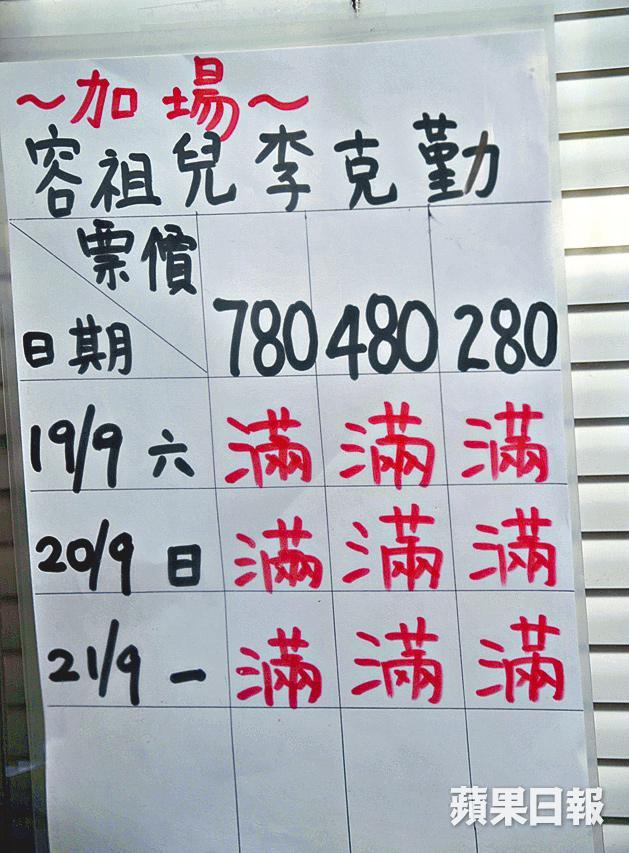 ～加場～
容祖兒李克勤
票價
日期 780 480 280
19/9 六 滿 滿 滿
20/9 日 滿 滿 滿
21/9 一 滿 滿 滿
蘋果日報